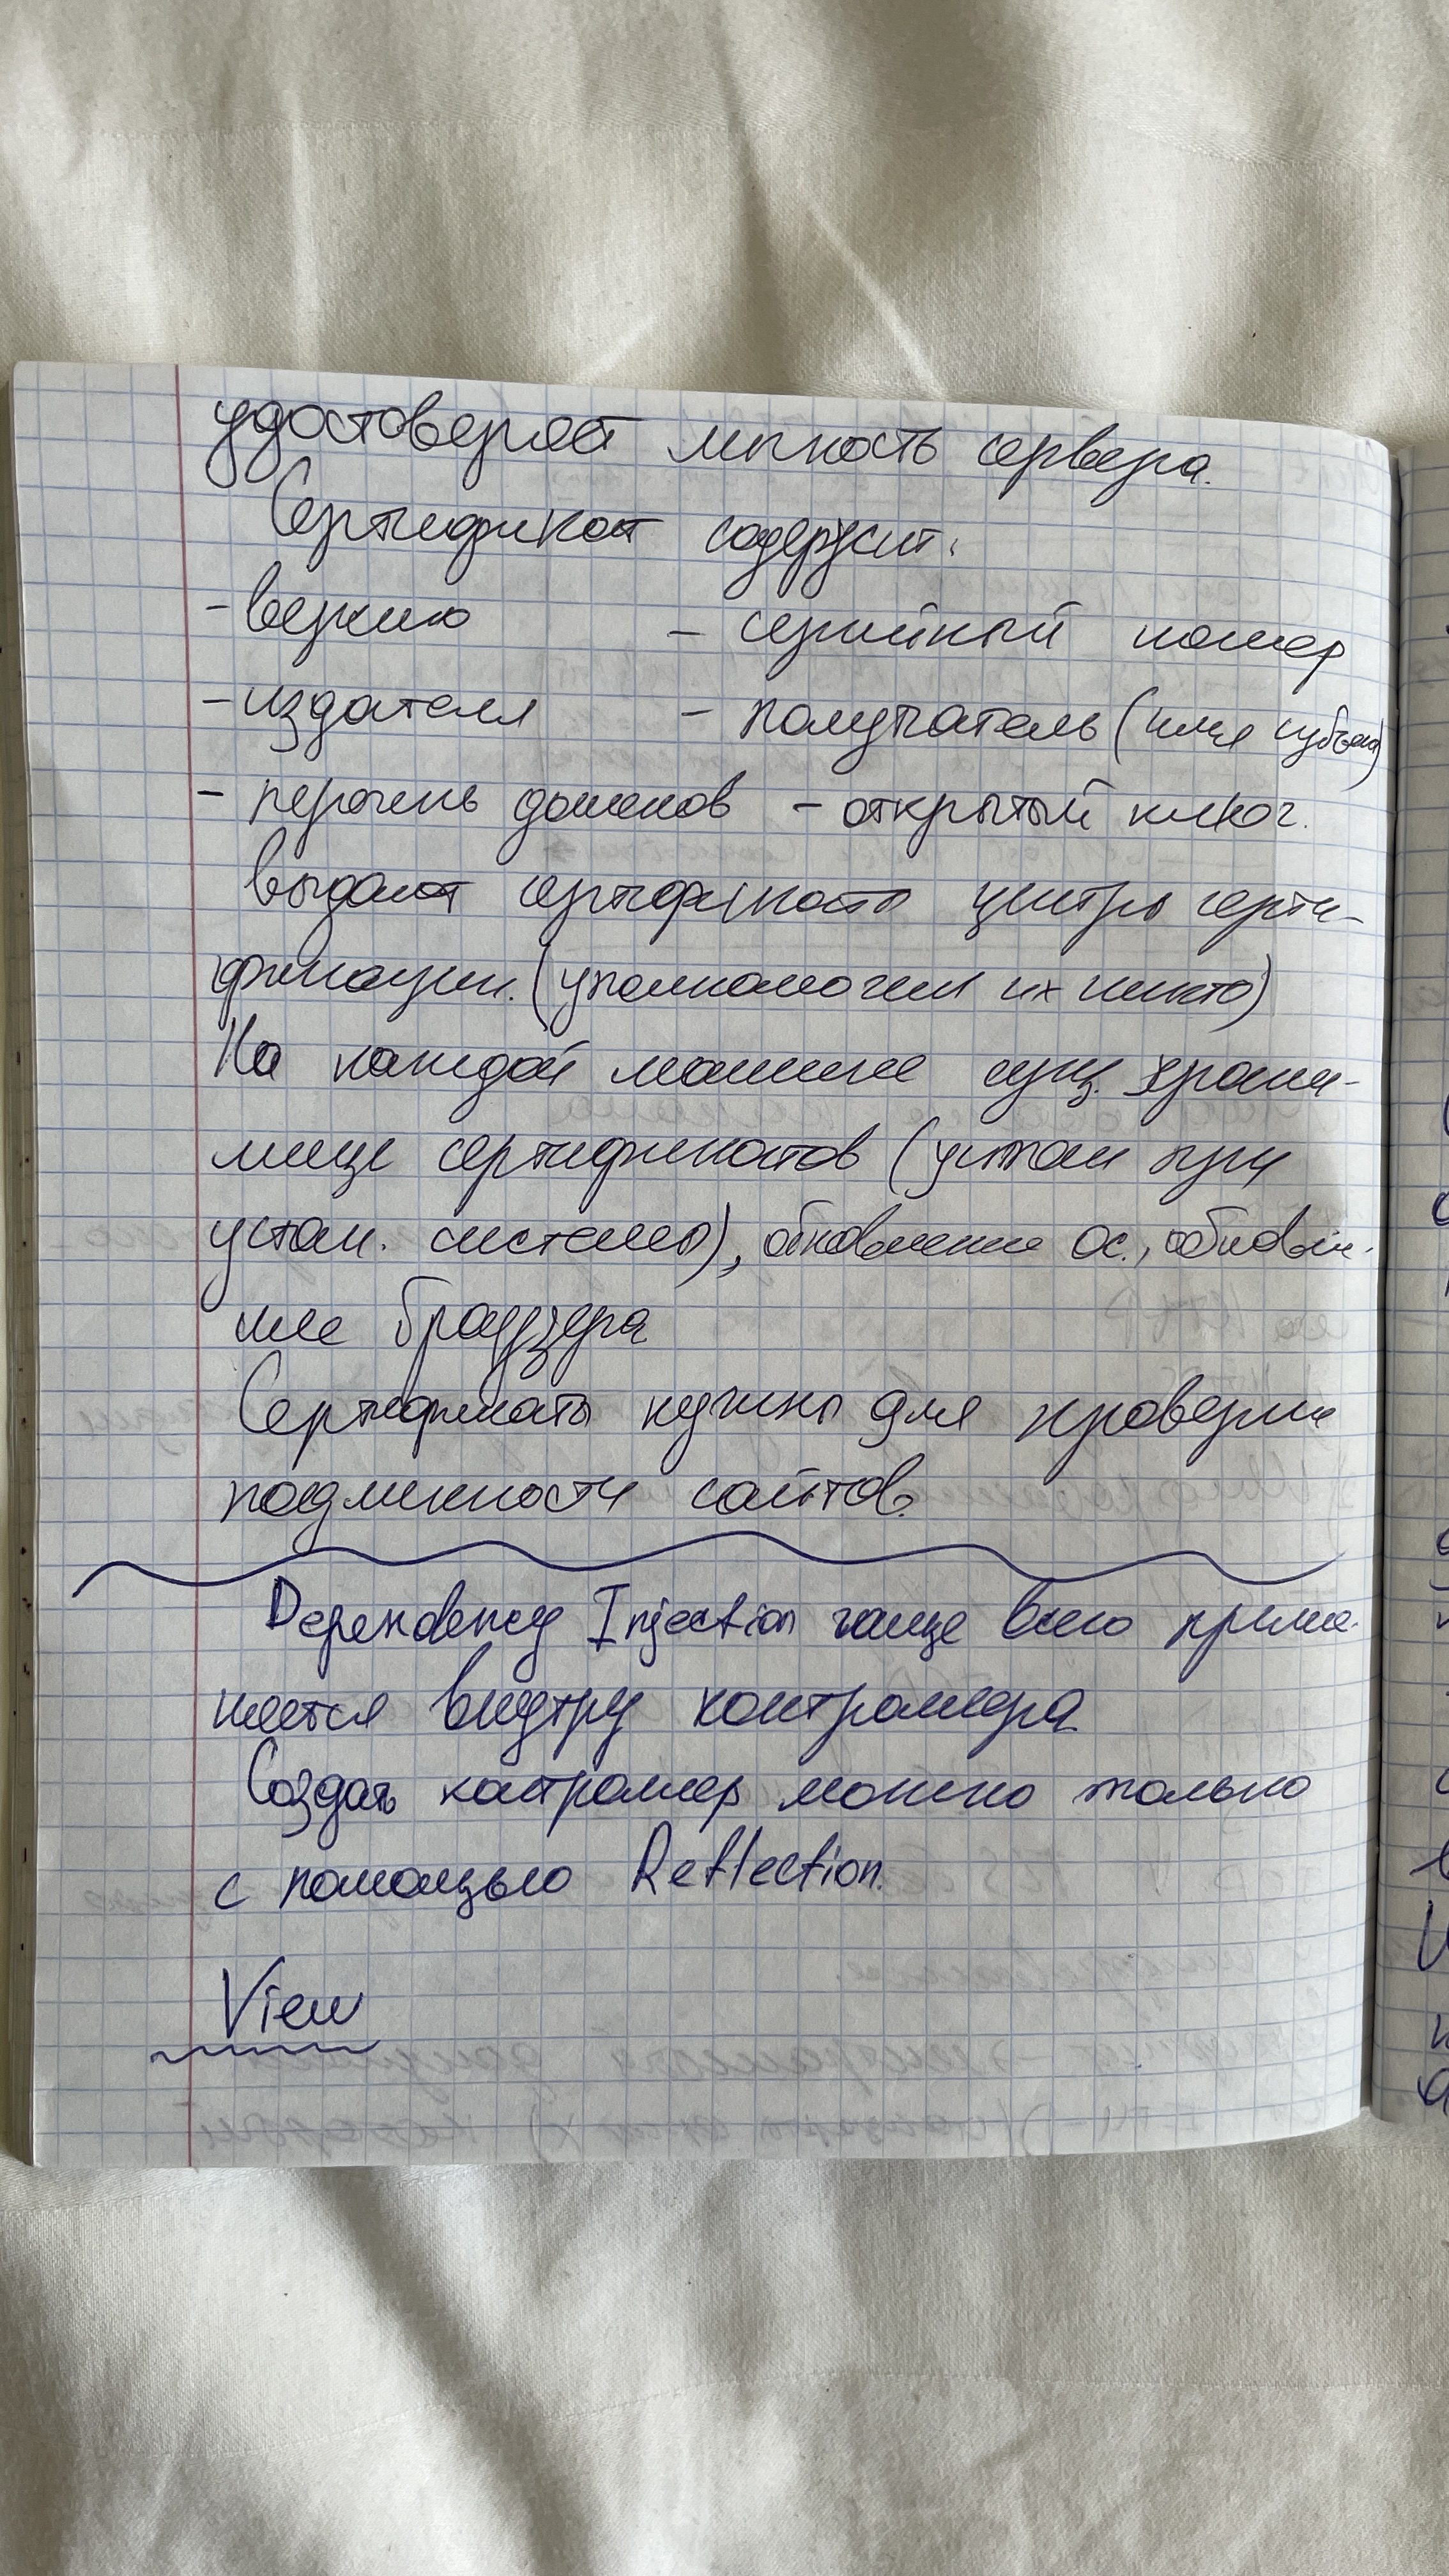 удостоверяет личность сервера.
Сертификат содержит:
- версию - серийный номер
- издателя - получатель (имя субъекта)
- перечень доменов - открытый ключ.
Выдают сертификаты центры серти-
фикации. (уполномочен их никто)
На каждой машине сущ. храни-
лище сертификатов (устан при
устан. системы), обновление ОС., обновле-
ние браузера
Сертификаты нужны для проверки
подлинности сайтов.
Dependency Injection чаще всего приме-
няется внутри контроллера
Создать контроллер можно только
с помощью Reflection.
View